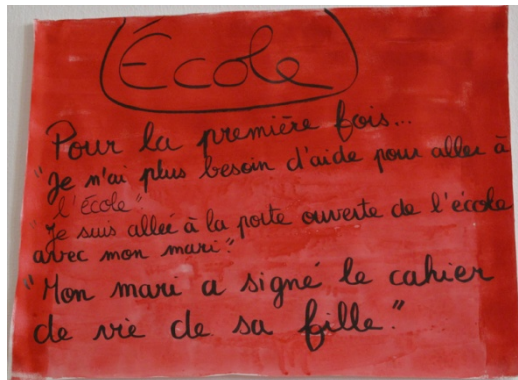 École
Pour la première fois...
"Je n'ai plus besoin d'aide pour aller à
l'école".
"Je suis allée à la porte ouverte de l'école
avec mon mari".
"Mon mari a signé le cahier
de vie de sa fille."